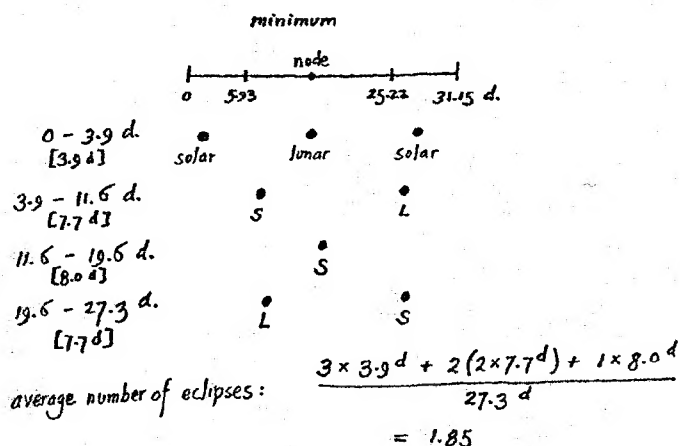 minimum
node
0 5.93 25.22 31.15 d.
0 - 3.9 d.
[3.9 d]
solar lunar solar
3.9 - 11.6 d.
[7.7 d]
S L
11.6 - 19.6 d.
[8.0 d]
S
19.6 - 27.3 d.
[7.7 d]
L S
average number of eclipses: 3 × 3.9 d + 2 (2 × 7.7 d) + 1 × 8.0 d
27.3 d
= 1.85